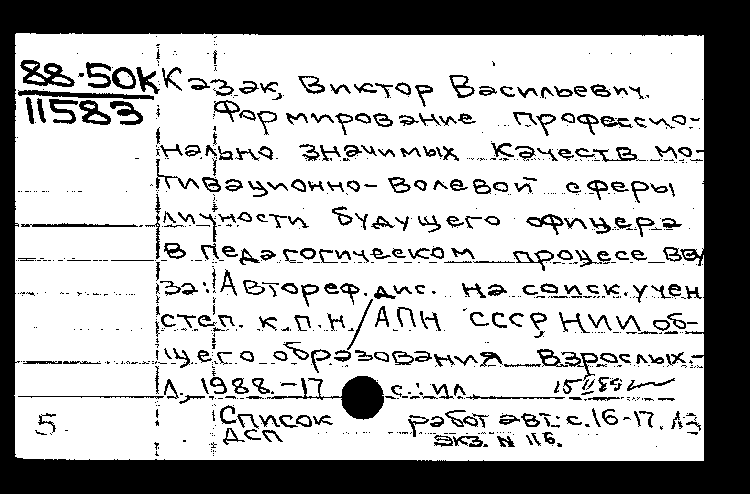 88-50К
11583
Казак, Виктор Васильевич.
Формирование профессио-
нально значимых качеств мо-
тивационно-волевой сферы
личности будущего офицера
в педагогическом процесе вву
за: Автореф. дис. на соиск. учен
степ. к.п.н. / АПН СССР, НИИ об-
щего образования взрослых.-
Л, 1988.-17 с.: ил.
5. Список работ авт.: с.16-17.
ДСП экз. N 116.